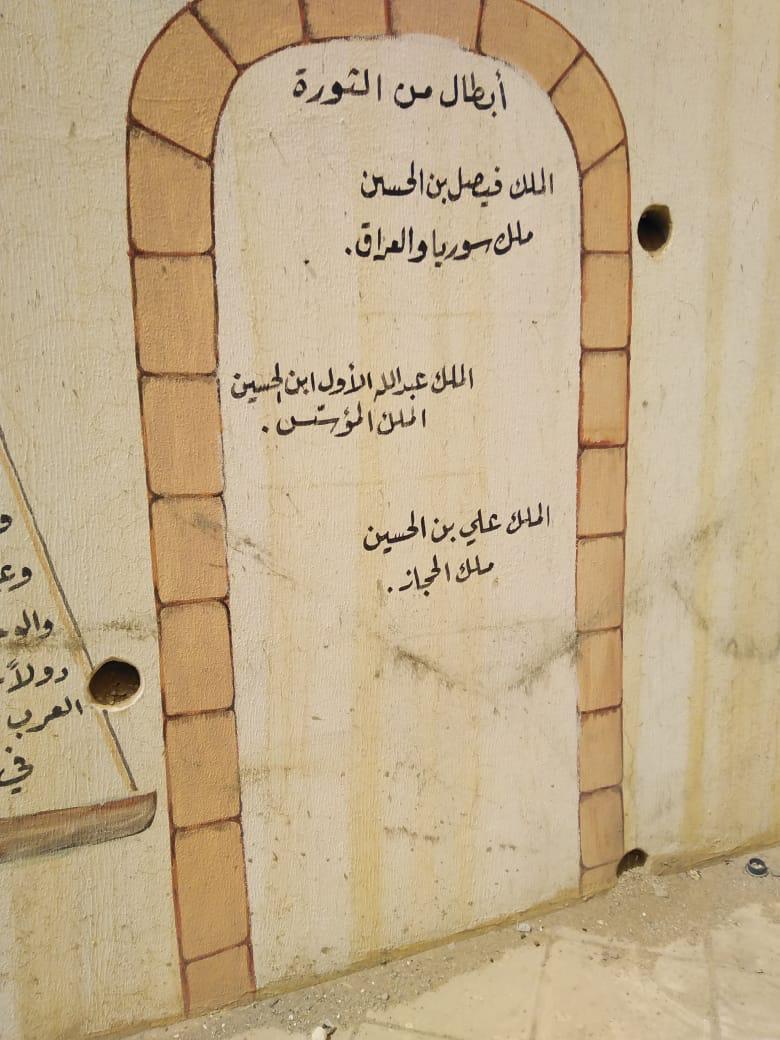 أبطال من الثورة
الملك فيصل بن الحسين
ملك سوريا والعراق.
الملك عبدالله الأول ابن الحسين
الملك المؤسّس.
الملك علي بن الحسين
ملك الحجاز.
و
وع
والو
دولاً
العرب
في